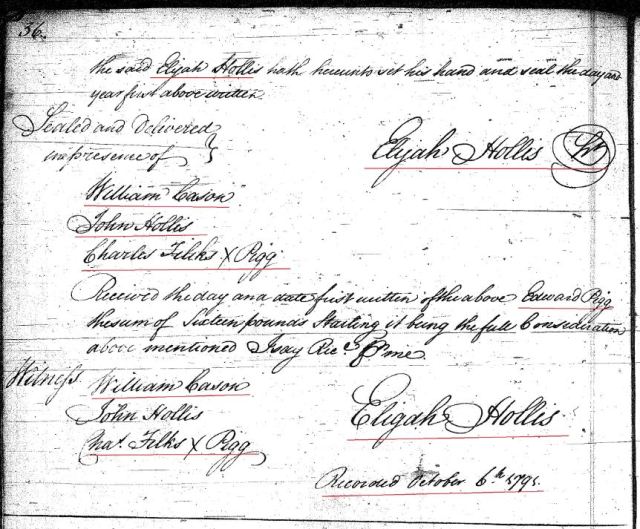 36.
the said Elijah Hollis hath hereunto set his hand and seal the day and
year first above written
Sealed and Delivered
in presence of
Elijah Hollis
William Cason
John Hollis
Charles Filks X Pigg
Received the day and date first written of the above Edward Pigg
the sum of Sixteen pounds Starling it being the full Consideration
above mentioned I say Rec.d pr me
Witness.
William Cason
John Hollis
Elijah Hollis
Chas. Filks X Pigg
Recorded October 6th 1791.